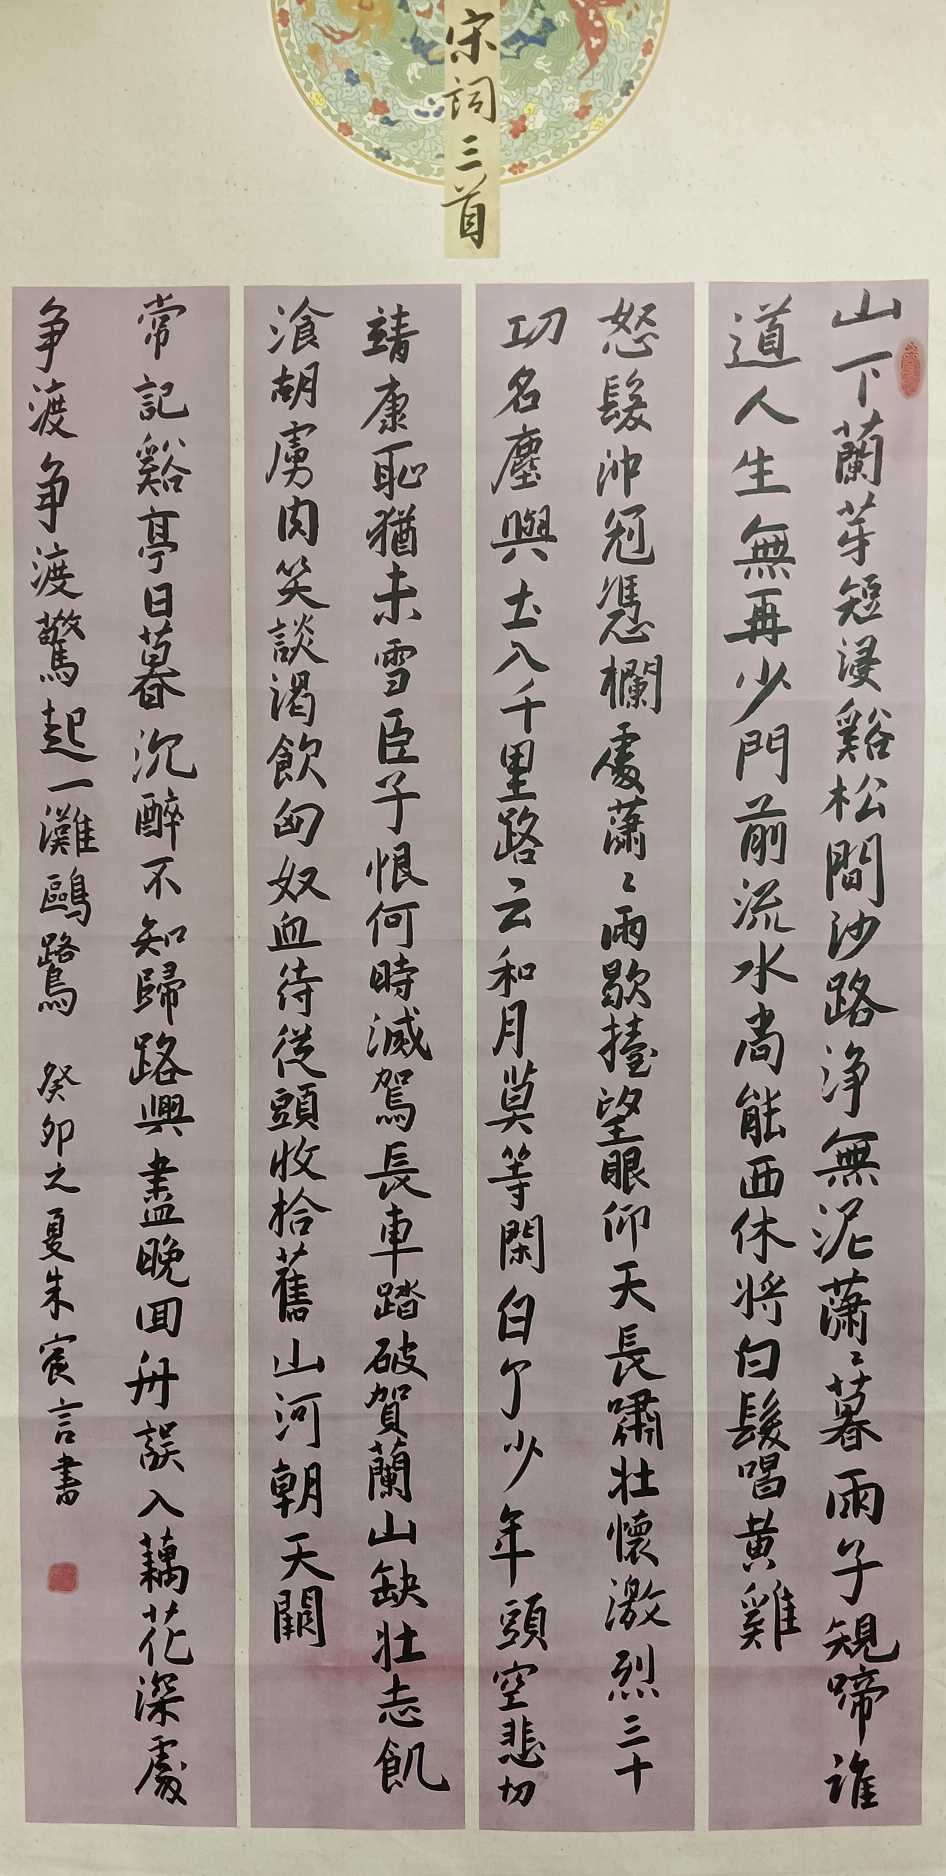 宋詞三首
山下蘭芽短浸谿松間沙路淨無泥蕭〻暮雨子規啼誰
道人生無再少門前流水尚能西休將白髮唱黄雞
怒髮沖冠憑欄處蕭〻雨歇擡望眼仰天長嘯壯懷激烈三十
功名塵與土八千里路云和月莫等閑白了少年頭空悲切
靖康恥猶未雪臣子恨何時滅駕長車踏破賀蘭山缺壯志飢
飡胡虜肉笑談渴飲匈奴血待從頭收拾舊山河朝天闕
常記谿亭日暮沉醉不知歸路興盡晚回舟誤入藕花深處
争渡争渡驚起一灘鷗鷺 癸卯之夏朱賓言書